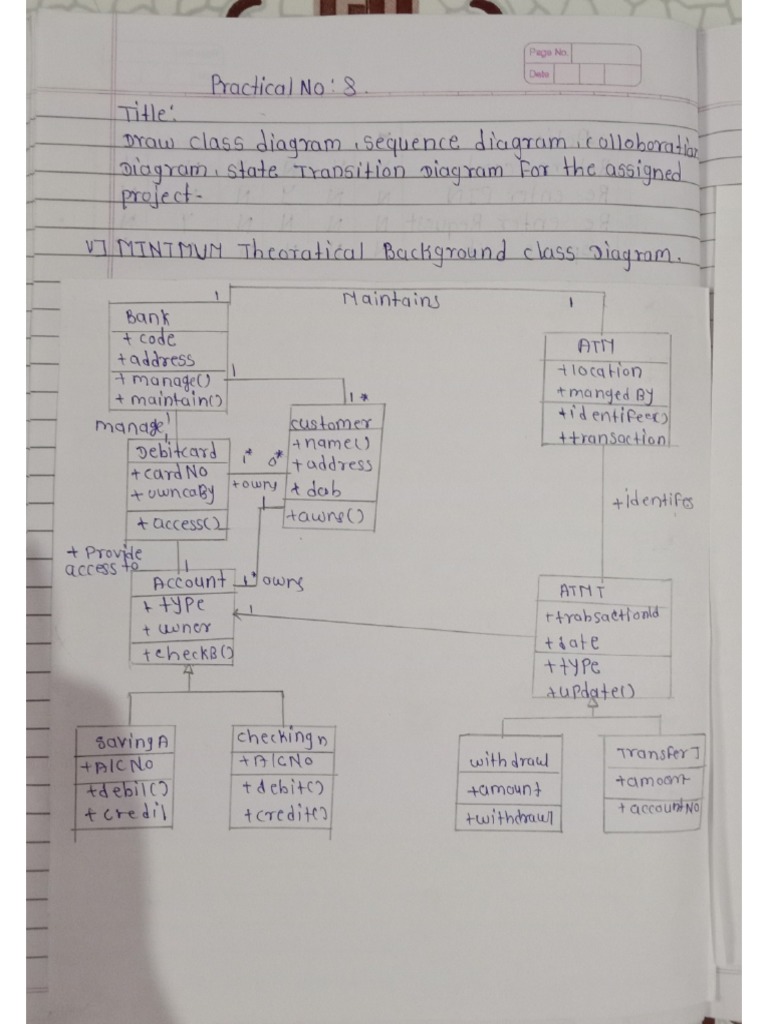 Page No.
Date
Practical No: 8.
Title:
Draw class diagram, sequence diagram, colloboration
Diagram, state Transition Diagram For the assigned
project-
V] MINIMUM Theoratical Background class Diagram.
1 Maintains 1
Bank
+ code
+address
+ manage()
+ maintain()
1
1*
ATM
+location
+mangedBy
+identifee()
+transaction
manage 1
1
customer
+name()
+address
+ dob
+awns()
Debitcard
+cardNo
+ owncaBy
+ access()
1* 0*
+owns
+identifes
+ Provide
access to
1
Account
+ type
+ owner
+checkB()
1* owns
1
ATMT
+trabsactionId
+date
+type
+update()
savingA
+A/CNo
+debil()
+credil
checkingn
+A/CNo
+debit()
+credite)
withdrawl
+amount
+withdrawl
Transfer]
+amoant
+accountNo